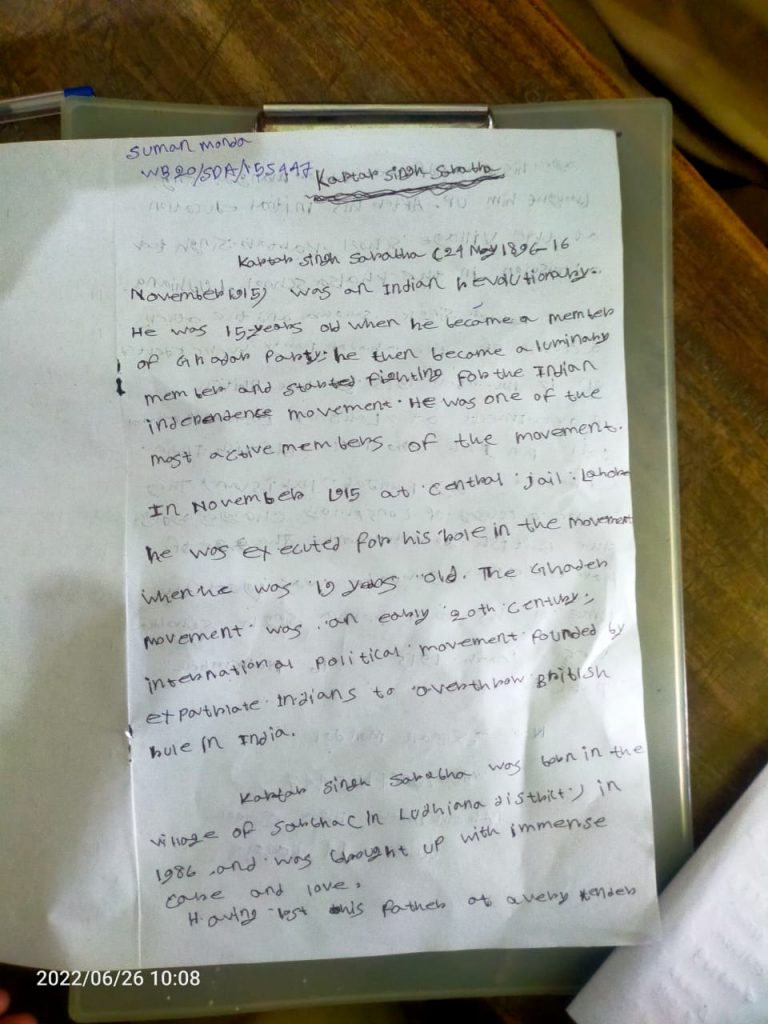 Suman monda
WB20/SDA/155447
Kartar Singh Sarabha
Kartar Singh Sarabha (24 May 1896-16
November 1915) was an Indian revolutionary.
He was 15-years old when he became a member
of Ghadar Party. he then become a luminary
member and started fighting for the Indian
independense movement. He was one of the
most active members of the movement.
In November 1915 at central jail Lahore
he was executed for his role in the movement
when he was 19 years old. The Ghader
movement was an early 20th century,
international political movement founded by
expatriate Indians to overthrow British
rule in India.
Kartar Singh Sarabha was born in the
village of Sarbha (In Ludhiana district) in
1986 and was brought up with immense
care and love.
Having lost his father at a very tender
2022/06/26 10:08